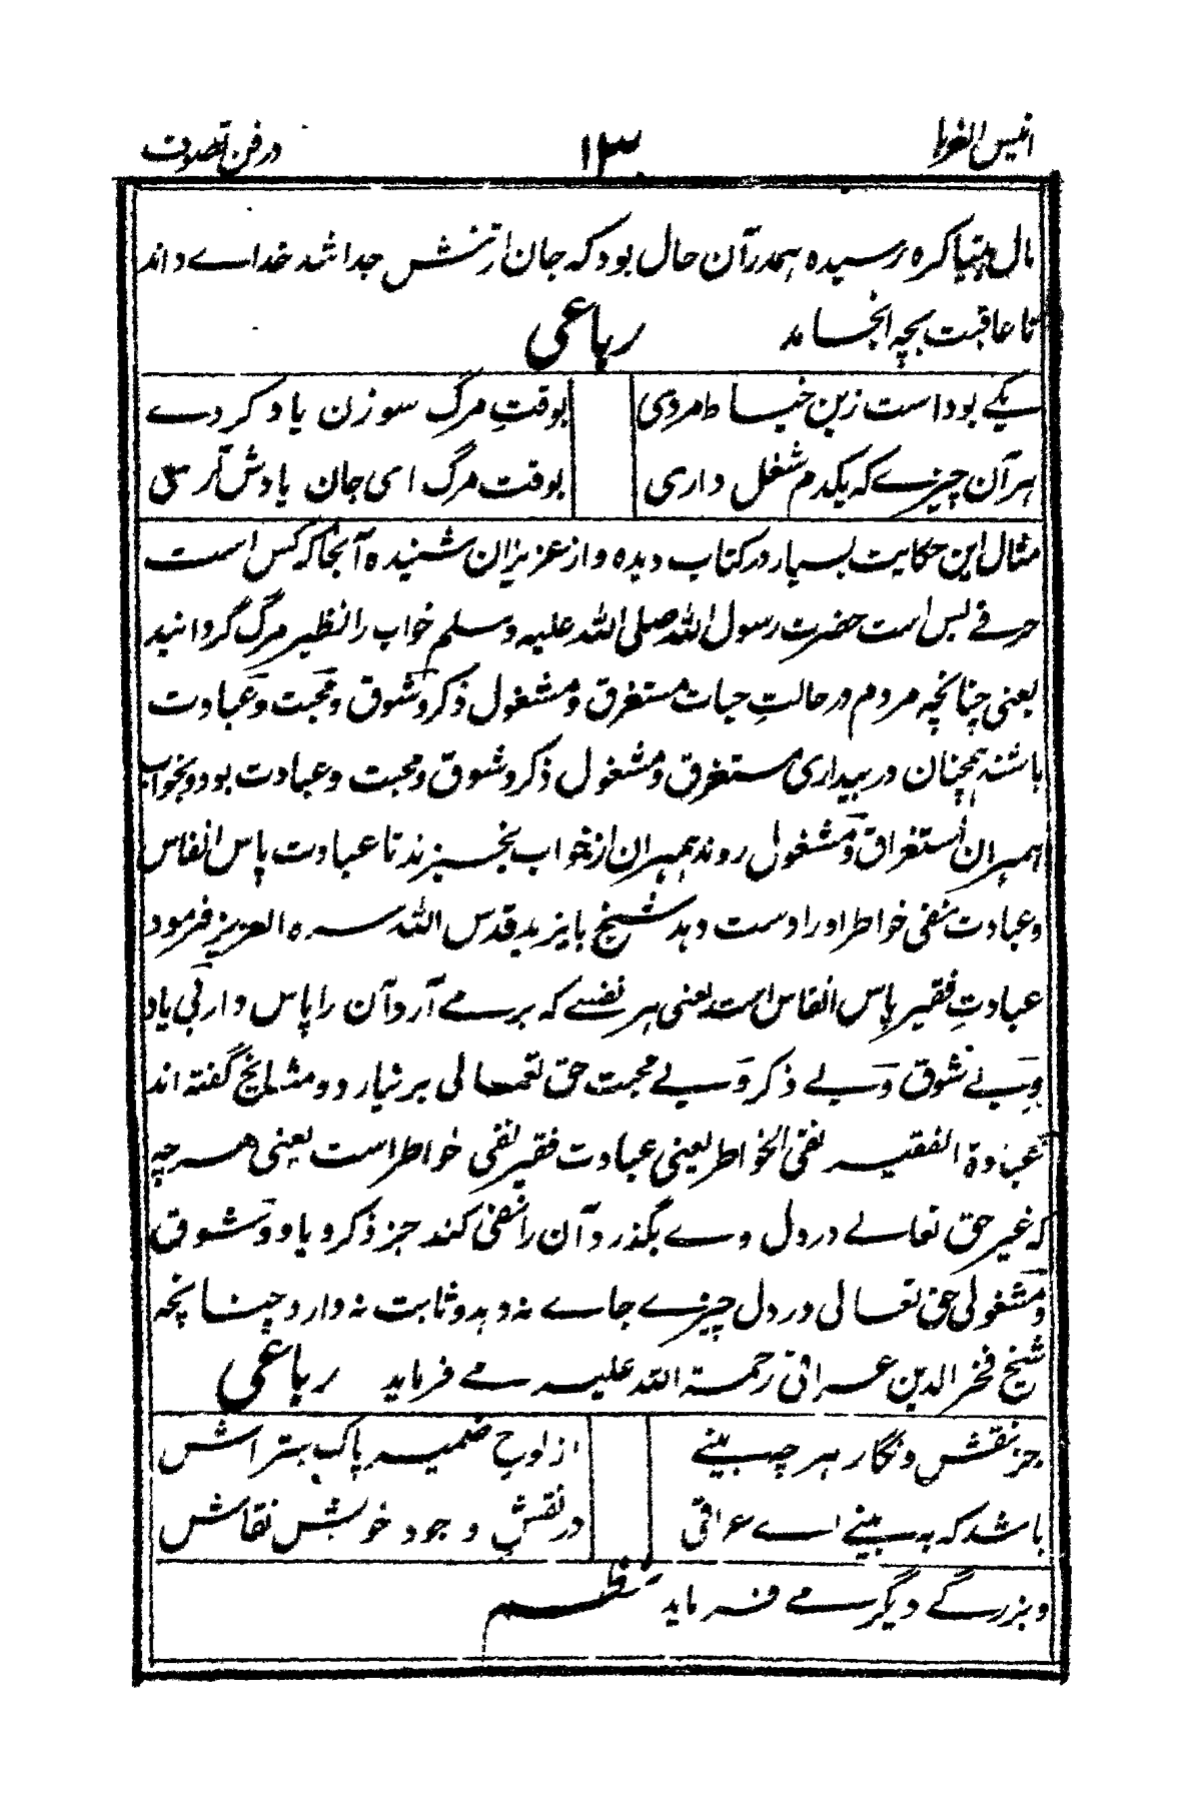 انیس الغربا ۱۳ در فن تصوف
مال مہتیا کرہ رسیدہ ہمدرآن حال بود کہ جان از تنش جدا شد خداے داند
تا عاقبت بچہ انجامد رباعی
یکے بود است زین خیاط مردی بوقتِ مرگ سوزن یاد کردے
ہرآن چیزے کہ یکدم شغل داری بوقت مرگ ای جان یادش آرسی
مثال این حکایت بسیار در کتاب دیدہ و از عزیزان شنیدہ آنجا کہ کس است
حرفے بس است حضرت رسول اللہ صلی اللہ علیہ وسلم خواب را نظیر مرگ گردانید
یعنی چنانچہ مردم در حالتِ حیات مستغرق و مشغول ذکر و شوق و محبت و عبادت
باشند ہمچنان در بیداری مستغرق و مشغول ذکر و شوق و محبت و عبادت بود و بخواب
ہمبران استغراق و مشغول روند ہمبران از خواب بخیزند تا عبادت پاس انفاس
و عبادت نفی خواطر او را دست دہد شیخ بایزید قدس اللہ سرہ العزیز فرمود
عبادتِ فقیر پاس انفاس است یعنی ہر نفسے کہ برمے آرد آن را پاس دارد بی یاد
و بے شوق و بے ذکر و بے محبت حق تعالی بر نیارد و مشایخ گفتہ اند
عبادة الفقیر نفی الخواطر یعنی عبادت فقیر نفی خواطر است یعنی ہرچہ
کہ غیر حق تعالے در دل وے بگذرد آن را نفی کند جز ذکر و یاد و شوق
و مشغولی حق تعالی در دل چیزے جاے نہ دہد و ثابت نہ دارد چنانچہ
شیخ فخر الدین عراقی رحمة اللہ علیہ مے فرماید رباعی
جز نقش و نگار ہرچہ بینے از لوحِ ضمیر پاک بتراش
باشد کہ بہ بینے اے عراقی در نقشِ وجود خویش نقاش
و بزرگے دیگر مے فرماید نظم